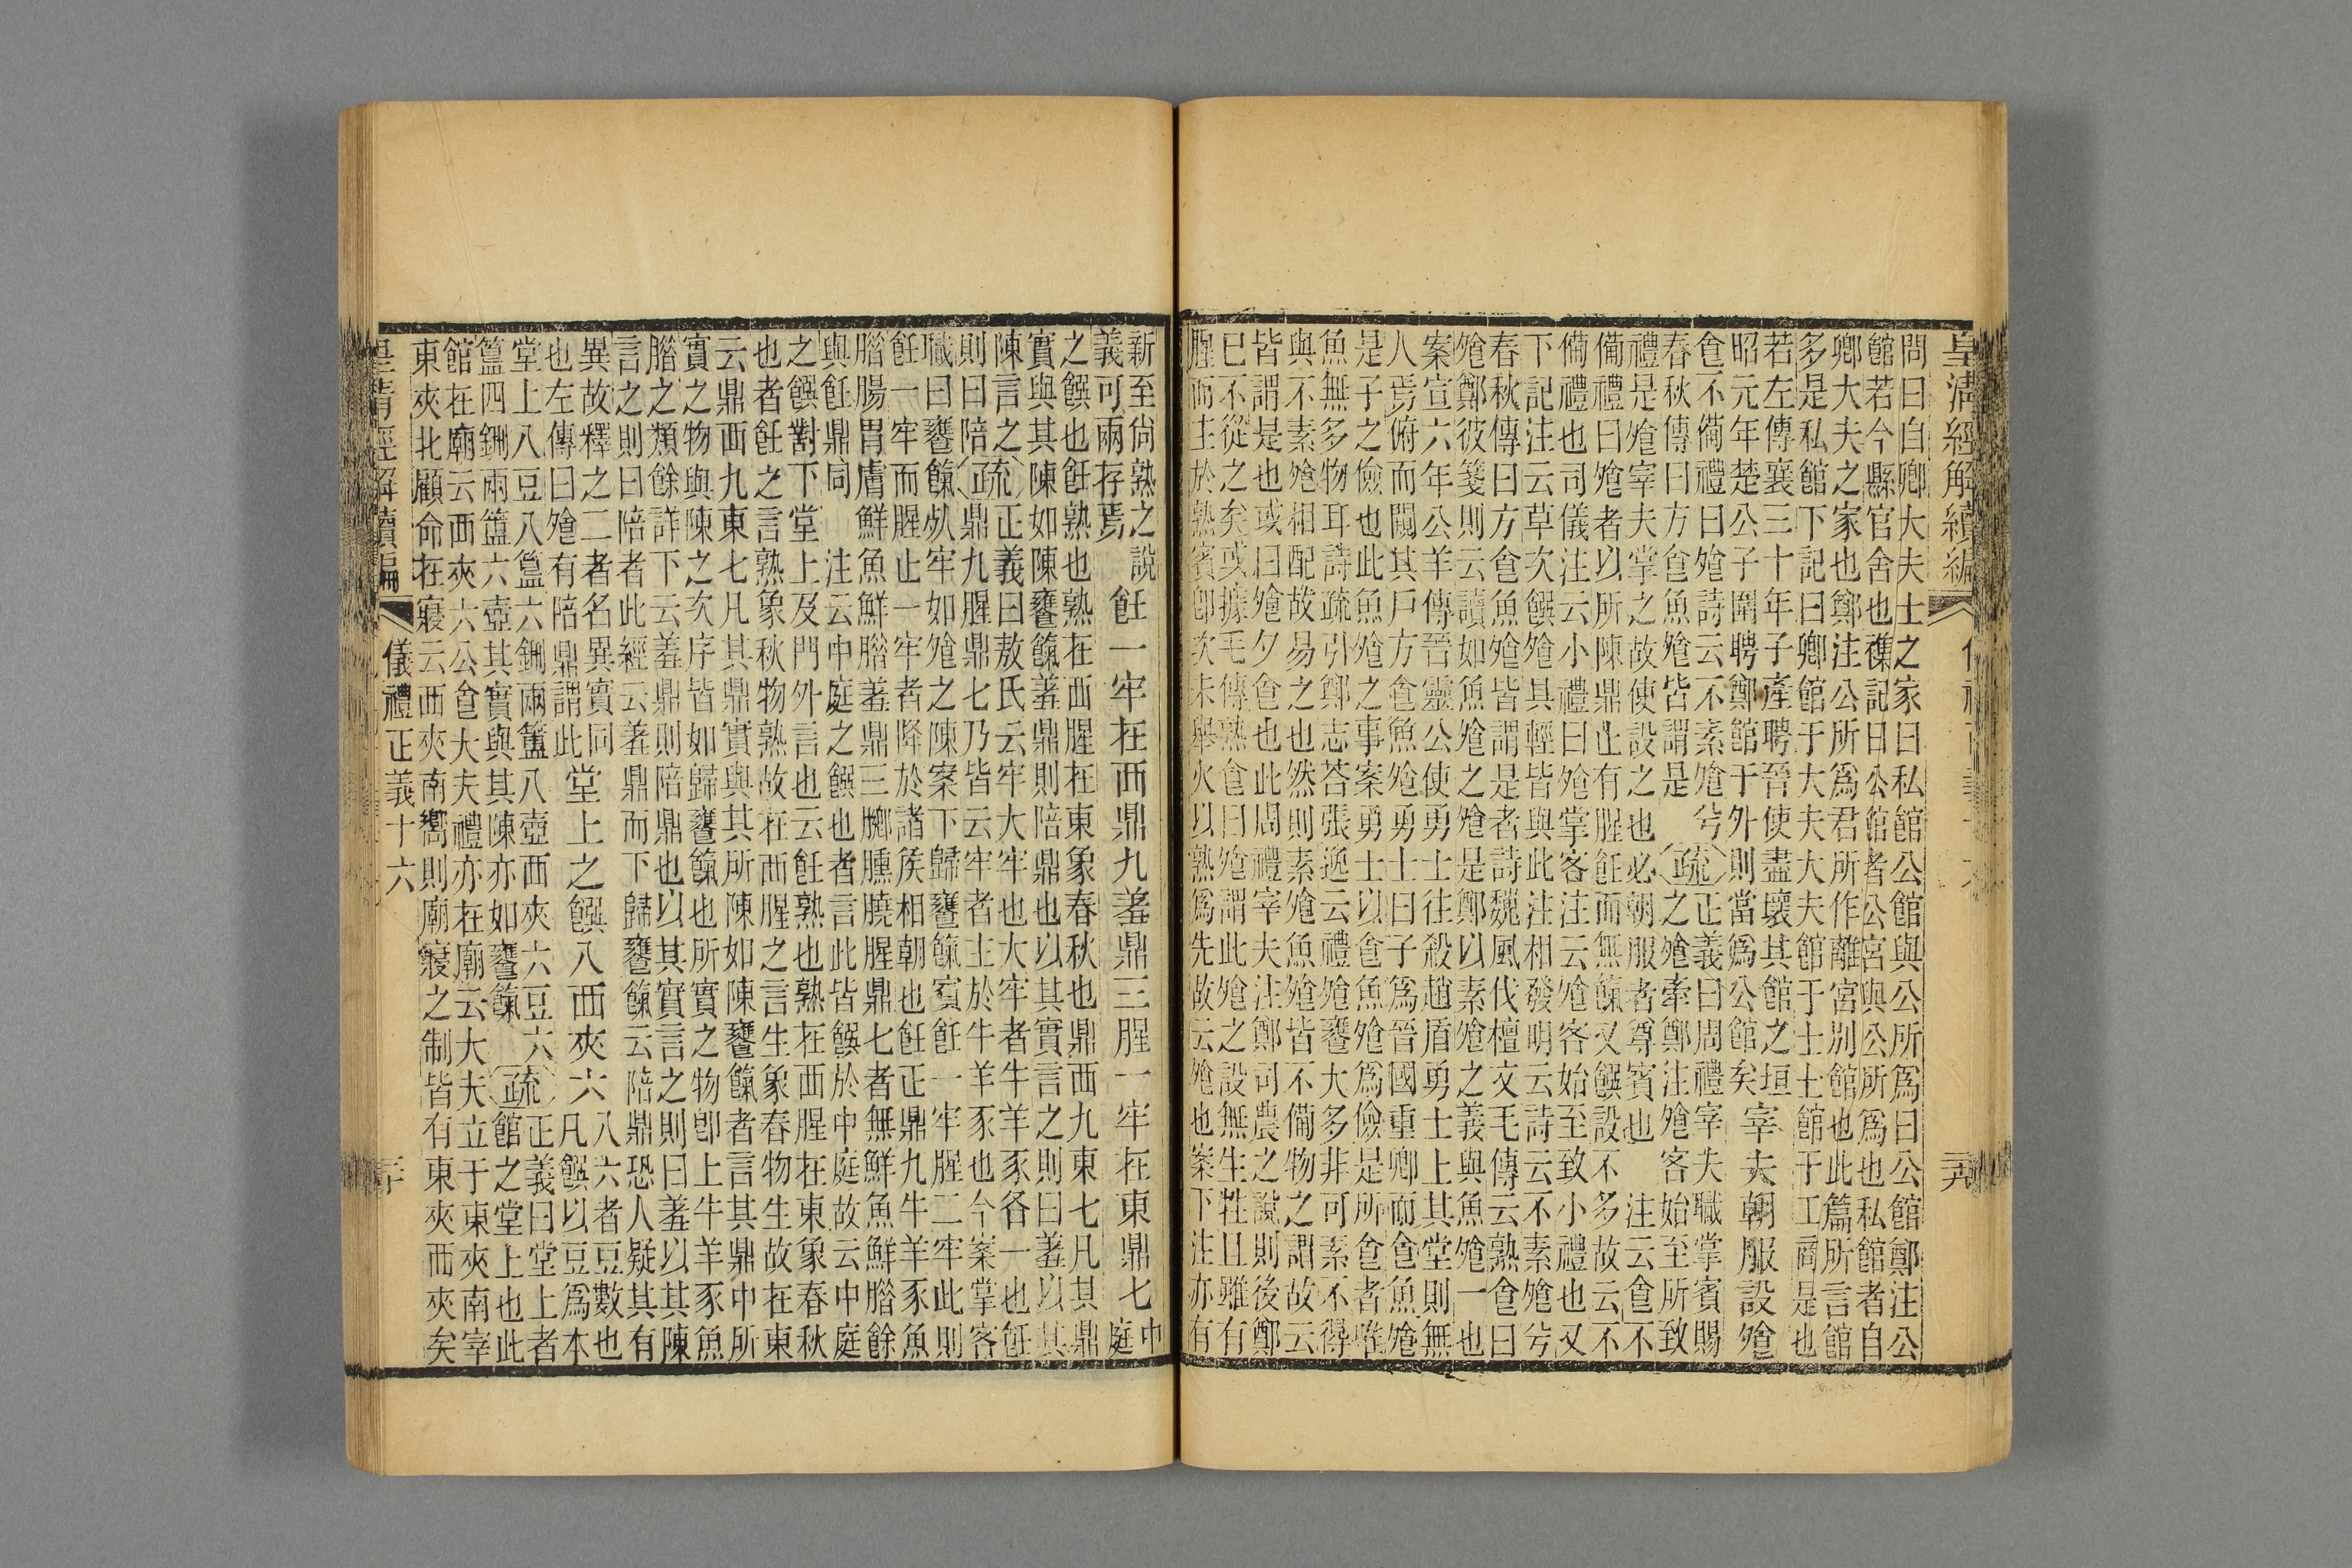 皇清經解續編 儀禮正義十六
問曰自卿大夫士之家曰私館公館與公所爲曰公館鄭注公
館若今縣官舍也襍記曰公館者公宮與公所爲也私館者自
卿大夫之家也鄭注公所爲君所作離宮別館也此篇所言館
多是私館下記曰卿館于大夫大夫館于士士館于工商是也
若左傳襄三十年子產聘晉使盡壞其館之垣
昭元年楚公子圍聘鄭館于外則當爲公館矣 宰夫朝服設飧
食不備禮曰飧詩云不素飧兮
春秋傳曰方食魚飧皆謂是 疏 正義曰周禮宰夫職掌賓賜
之飧牽鄭注飧客始至所致
禮是飧宰夫掌之故使設之也必朝服者尊賓也 注云食不
備禮曰飧者以所陳鼎止有腥飪而無餼又饌設不多故云不
備禮也司儀注云小禮曰飧掌客注云飧客始至致小禮也又
下記注云草次饌飧具輕皆與此注相發明云詩云不素飧兮
春秋傳曰方食魚飧皆謂是者詩魏風伐檀文毛傳云熟食曰
飧鄭彼箋則云讀如魚飧之飧是鄭以素飧之義與魚飧一也
案宣六年公羊傳晉靈公使勇士往殺趙盾勇士上其堂則無
人焉俯而闚其戶方食魚飧勇士曰子爲晉國重卿而食魚飧
是子之儉也此魚飧之事案勇士以食魚飧爲儉是所食者唯
魚無多物耳詩疏引鄭志荅張逸云禮飧饔大多非可素不得
與不素飧相配故易之也然則素飧魚飧皆不備物之謂故云
皆謂是也或曰飧夕食也此周禮宰夫注鄭司農之說則後鄭
已不從之矣或據毛傳熟食曰飧謂此飧之設無生牲且雖有
腥而主於熟賓卽次未舉火以熟爲先故云飧也案下注亦有
新至尙熟之說
義可兩存焉 飪一牢在西鼎九羞鼎三腥一牢在東鼎七 中庭
之饌也飪熟也熟在西腥在東象春秋也鼎西九東七凡其鼎
實與其陳如陳饔餼羞鼎則陪鼎也以其實言之則曰羞以其
陳言之
則曰陪 疏 正義曰敖氏云牢大牢也大牢者牛羊豕各一也飪
鼎九腥鼎七乃皆云牢者主於牛羊豕也今案掌客
職曰饔餼視牢如飧之陳案下歸饔餼賓飪一牢腥二牢此則
飪一牢而腥止一牢者降於諸侯相朝也飪正鼎九牛羊豕魚
腊腸胃膚鮮魚鮮腊羞鼎三膷臐膮腥鼎七者無鮮魚鮮腊餘
與飪鼎同 注云中庭之饌也者言此皆饌於中庭故云中庭
之饌對下堂上及門外言也云飪熟也熟在西腥在東象春秋
也者飪之言熟象秋物熟故在西腥之言生象春物生故在東
云鼎西九東七凡其鼎實與其所陳如陳饔餼者言其鼎中所
實之物與陳之次序皆如歸饔餼也所實之物卽上牛羊豕魚
腊之類餘詳下云羞鼎則陪鼎也以其實言之則曰羞以其陳
言之則曰陪者此經云羞鼎而下歸饔餼云陪鼎恐人疑其有
異故釋之二者名異實同
也左傳曰飧有陪鼎謂此 堂上之饌八西夾六 八六者豆數也
凡饌以豆爲本
堂上八豆八簋六鉶兩簠八壺西夾六豆六
簋四鉶兩簠六壺其實與其陳亦如饔餼 疏 正義曰堂上者
館之堂上也此
館在廟云西夾六公食大夫禮亦在廟云大夫立于東夾南宰
東夾北顧命在寢云西夾南嚮則廟寢之制皆有東夾西夾矣
皇清經解續編 儀禮正義十六